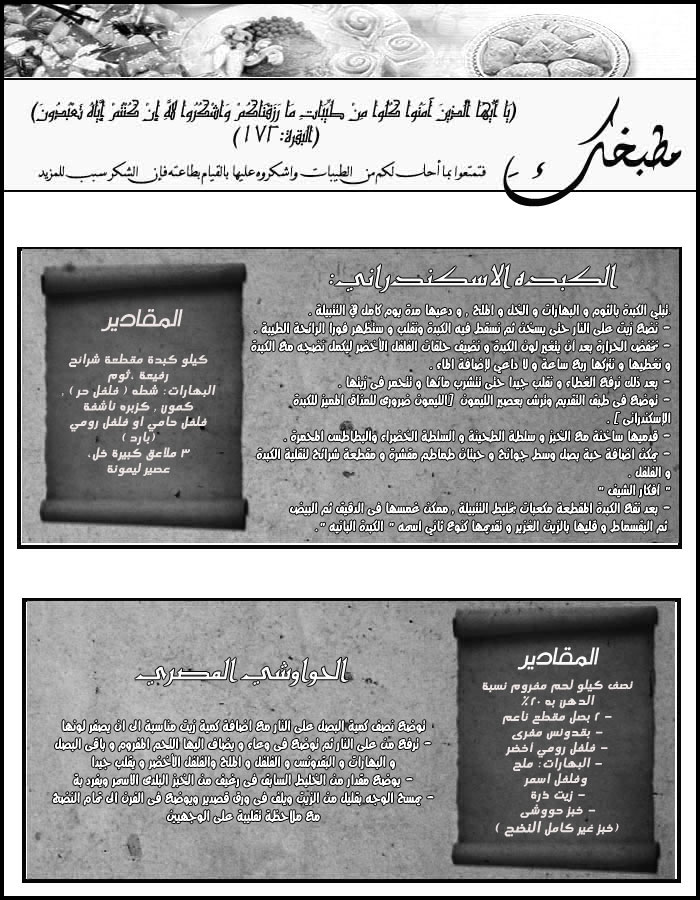 (يَا أَيُّهَا الَّذِينَ آمَنُوا كُلُوا مِنْ طَيِّبَاتِ مَا رَزَقْنَاكُمْ وَاشْكُرُوا لِلَّهِ إِنْ كُنْتُمْ إِيَّاهُ تَعْبُدُونَ)
(البقرة:١٧٢)
فتمتعوا بما أحل لكم من الطيبات واشكروه عليها بالقيام بطاعته فإن الشكر سبب للمزيد
مطبخكِ
الكبده الاسكندراني:
تبلي الكبدة بالثوم و البهارات و الخل و الملح , و دعيها مدة يوم كامل في التتبيلة .
- نضع زيت على النار حتى يسخن ثم نسقط فيه الكبدة ونقلب و ستظهر فورا الرائحة الطيبة .
- تخفض الحرارة بعد ان يتغير لون الكبدة و نضيف حلقات الفلفل الأخضر ليكمل نضجه مع الكبدة
و نغطيها و نتركها ربع ساعة و لا داعي لإضافة الماء .
- بعد ذلك نرفع الغطاء و نقلب جيدا حتى تتشرب مائها و تتحمر فى زيتها .
- توضع فى طبق التقديم وترش بعصير الليمون [الليمون ضرورى للمذاق المميز للكبدة
الإسكندرانى ] .
- قدميها ساخنة مع الخبز و سلطة الطحينة و السلطة الخضراء والبطاطس المحمرة .
- يمكن اضافة حبة بصل وسط جوانح و حبتان طماطم مقشرة و مقطعة شرائح لتقلية الكبدة
و الفلفل .
" أفكار الشيف "
- بعد نقع الكبدة المقطعة مكعبات بخليط التتبيلة , ممكن غمسها فى الدقيق ثم البيض
ثم البقسماط و قليها بالزيت الغزير و تقديمها كنوع ثاني اسمه " الكبدة البانيه " .
المقادير
كيلو كبدة مقطعة شرائح
رفيعة ,ثوم
البهارات: شطه ( فلفل حر ) ,
كمون , كزبره ناشفة
فلفل حامي او فلفل رومي
(بارد )
٣ ملاعق كبيرة خل,
عصير ليمونة
المقادير
نصف كيلو لحم مفروم نسبة
الدهن به ٢٠٪
- ٢ بصل مقطع ناعم
- بقدونس مفرى
- فلفل رومي اخضر
- البهارات: ملح
وفلفل أسمر
- زيت ذرة
- خبز حووشى
(خبز غير كامل النضج )
الحواوشي المصري
توضع نصف كمية البصل على النار مع اضافة كمية زيت مناسبة الى ان يصفر لونها
- ترفع من على النار ثم توضع فى وعاء و يضاف اليها اللحم المفروم و باقى البصل
و البهارات و البقدونس و الفلفل و الملح والفلفل الأخضر و يقلب جيدا
- يوضع مقدار من الخليط السابق فى رغيف من الخبز البلدى الاسمر ويفرد به
- يمسح الوجه بقليل من الزيت ويلف فى ورق قصدير ويوضع فى الفرن الى تمام النضج
مع ملاحظة تقليبة على الوجهين